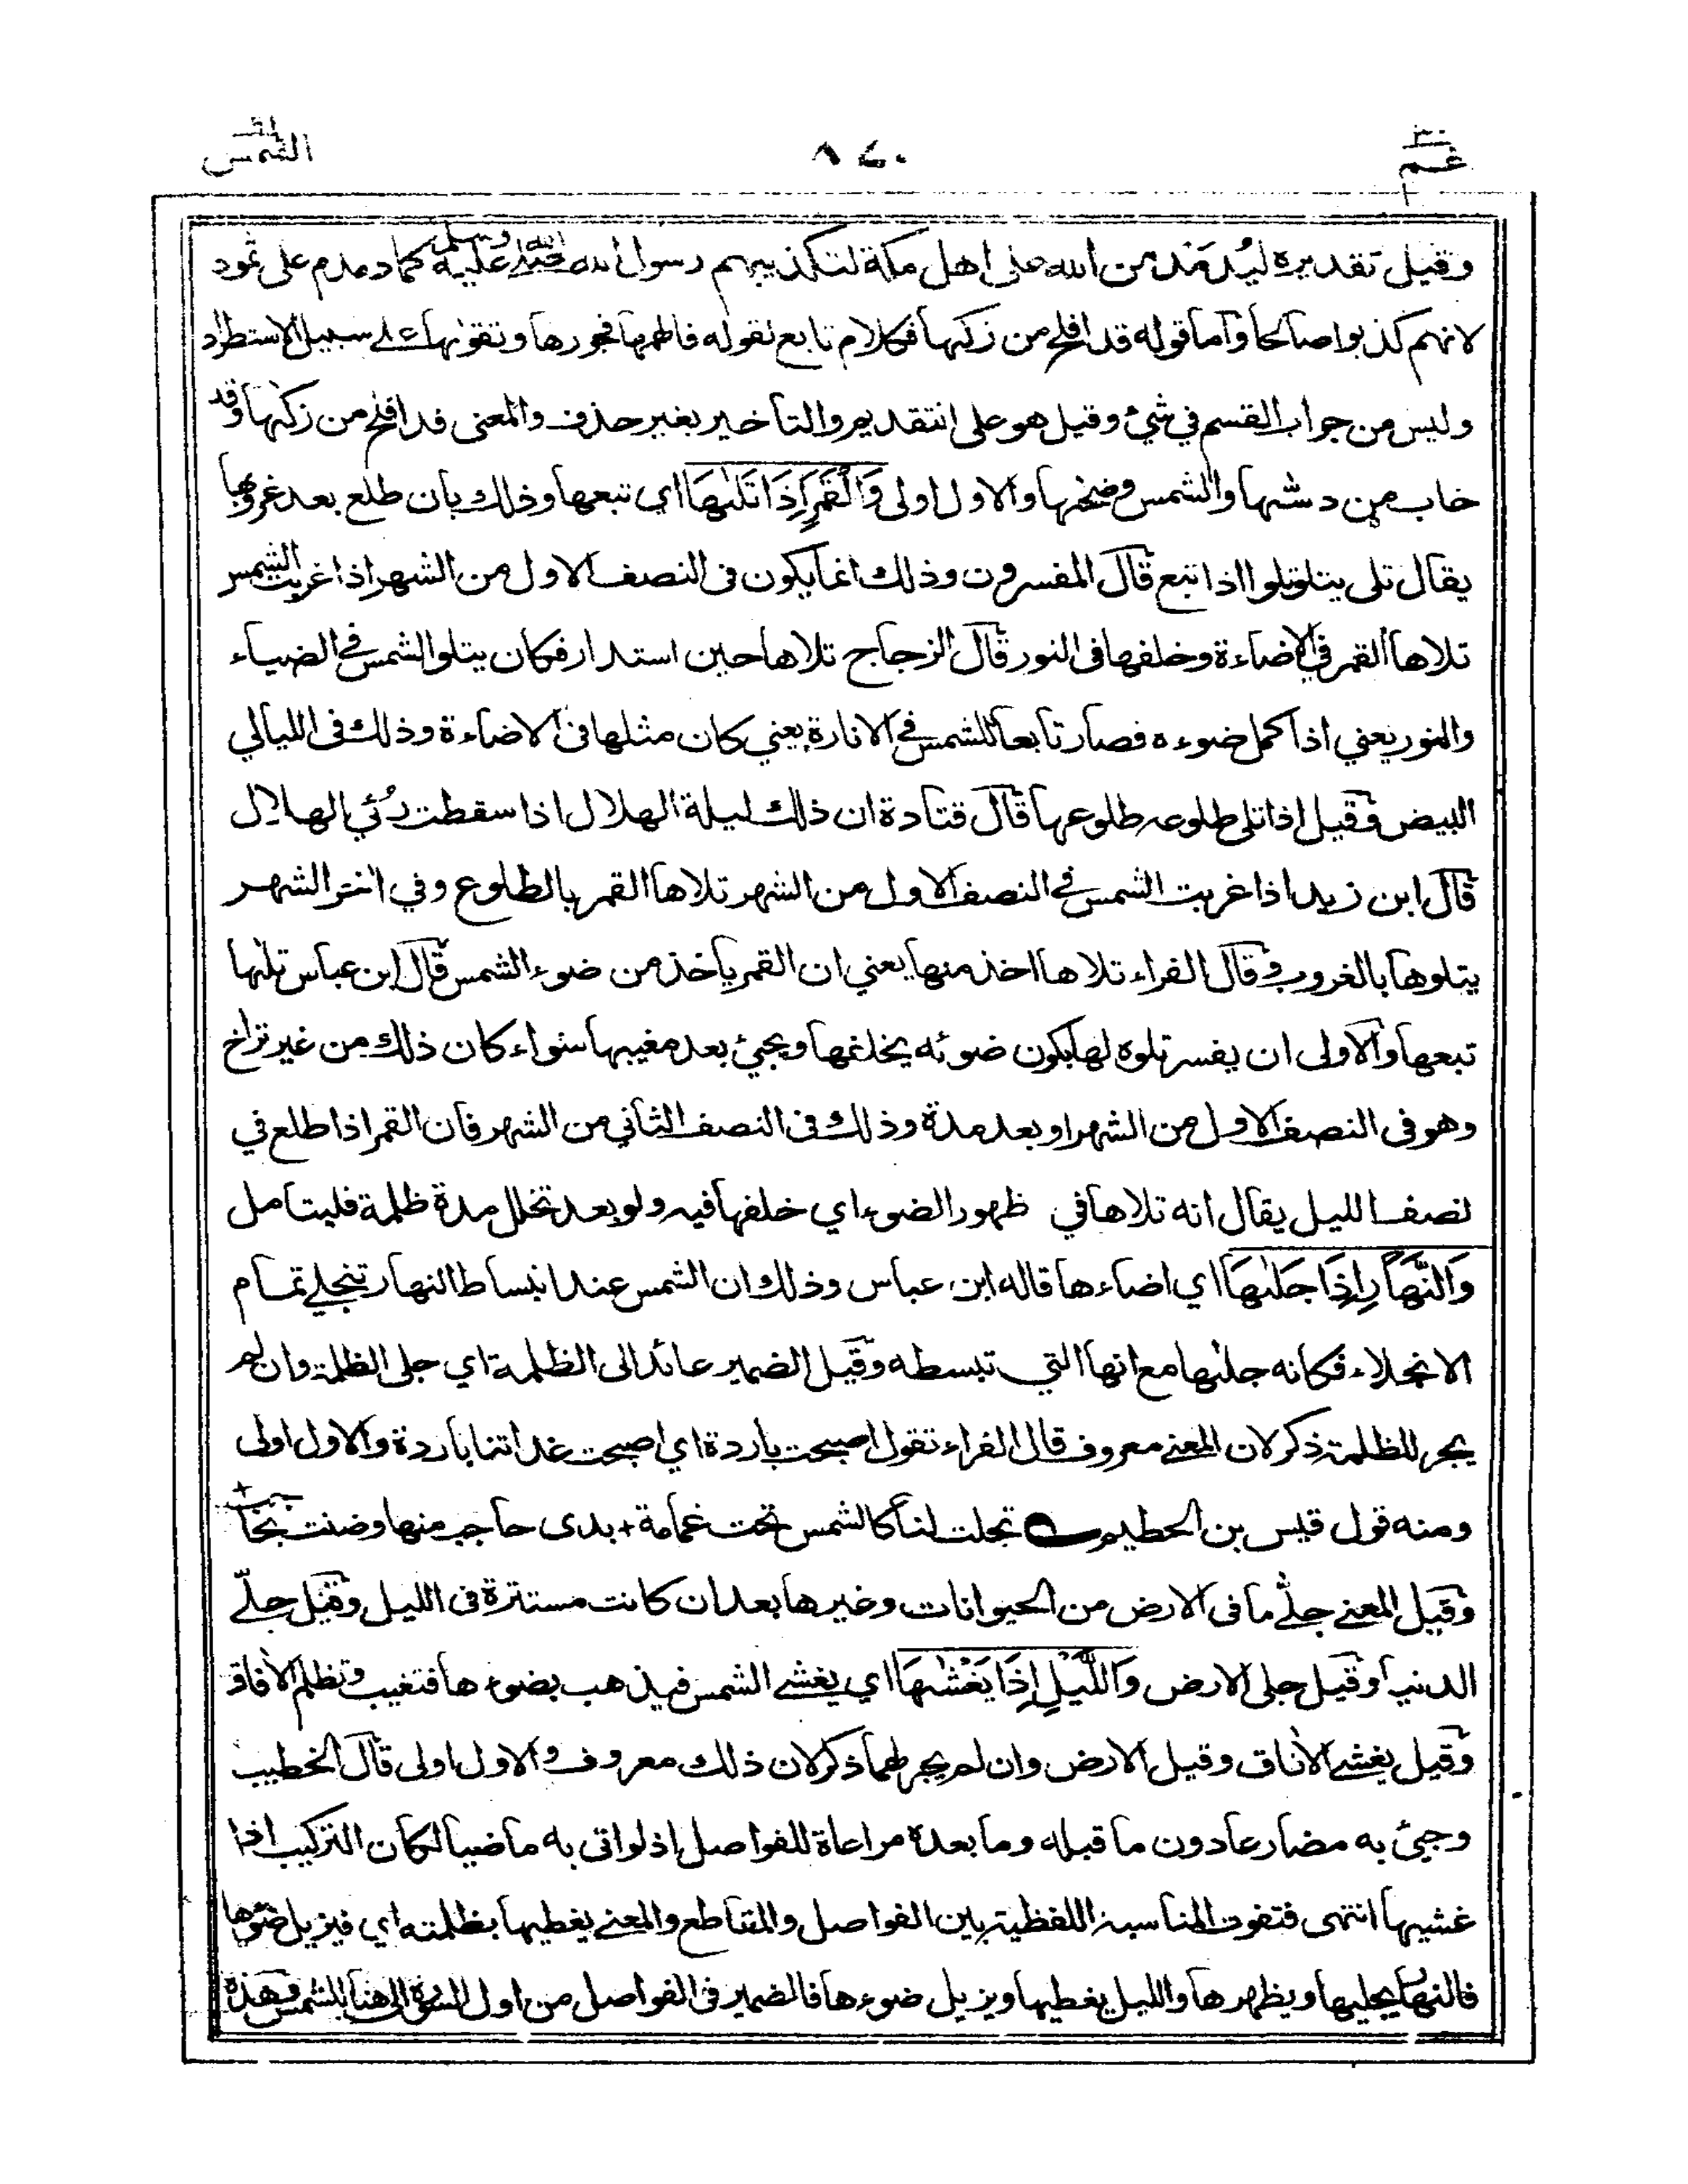 عم ٣٠
٨٤٠
الشمس
وقيل تقديره ليُدَمْدِمن الله على اهل مكة لتكذيبهم رسول الله صلى الله عليه وسلم كما دمدم على ثمود
لانهم كذبوا صالحا وآما قوله قد افلح من زكٰها فكلام تابع لقوله فالهمها فجورها وتقوٰىها علے سبيل الاستطراد
وليس من جواب القسم في شئ وقيل هو على التقديم والتأخير بغير حذف والمعنى قد افلح من زكٰها وقد
خاب من دسّٰها والشمس وضحٰها والاول اولى وَالْقَمَرِ اِذَا تَلٰىهَا اي تبعها وذلك بان طلع بعد غروبها
يقال تلى يتلو تلوا اذا تبع قال المفسرون وذلك انما يكون فى النصف الاول من الشهر اذا غربت الشمس
تلاها القمر في الاضاءة وخلفها فى النور قال الزجاج تلاها حين استدار فكان يتلو الشمس في الضياء
والنور يعني اذا كمل ضوءه فصار تابعا للشمس في الانارة يعني كان مثلها فى الاضاءة وذلك فى الليالي
البيض وقيل اذا تلى طلوعه طلوعها قال قتادة ان ذلك ليلة الهلال اذا سقطت رُئي الهلال
قال ابن زيد اذا غربت الشمس في النصف الاول من الشهر تلاها القمر بالطلوع وفي اٰخر الشهر
يتلوها بالغروب وقال الفراء تلاها اخذ منها يعني ان القمر يأخذ من ضوء الشمس قال ابن عباس تلٰىها
تبعها والاولى ان يفسر تلوه لها بكون ضوئه يخلفها ويجئ بعد مغيبها سواء كان ذلك من غير تراخ
وهو فى النصف الاول من الشهر او بعد مدة وذلك فى النصف الثاني من الشهر فان القمر اذا طلع في
نصف الليل يقال انه تلاها في ظهور الضوء اي خلفها فيه ولو بعد تخلل مدة ظلمة فليتامل
وَالنَّهَارِ اِذَا جَلّٰىهَا اي اضاءها قاله ابن عباس وذلك ان الشمس عند انبساط النهار تنجلي تمام
الانجلاء فكانه جلٰىها مع انها التي تبسطه وقيل الضمير عائد الى الظلمة اي جلى الظلمة وان لم
يجر للظلمة ذكر لان المعنے معروف قال الفراء تقول اصبحت باردة اي اصبحت غداتنا باردة والاول اولى
ومنه قول قيس بن الحطيم ؎ تجلت لنا كالشمس تحت غمامة + بدى حاجب منها وضنت بحاجب +
وقيل المعنے جلّٰے ما فى الارض من الحيوانات وغيرها بعد ان كانت مستترة فى الليل وقيل جلّے
الدنيا وقيل جلى الارض وَاللَّيْلِ اِذَا يَغْشٰىهَا اي يغشے الشمس فيذهب بضوءها فتغيب وتظلم الاٰفاق
وقيل يغشے الاٰفاق وقيل الارض وان لم يجر لهما ذكر لان ذلك معروف والاول اولى قال الخطيب
وجئ به مضارعا دون ما قبله وما بعده مراعاة للفواصل اذ لو اتى به ماضيا لكان التركيب اذا
غشيها انتهى فتفوت المناسبة اللفظية بين الفواصل والمقاطع والمعنے يغطيها بظلمته اي فيزيل ضوءها
فالنهار يجليها ويظهرها والليل يغطيها ويزيل ضوءها فالضمير فى الفواصل من اول السورة الى هنا للشمس وهذه